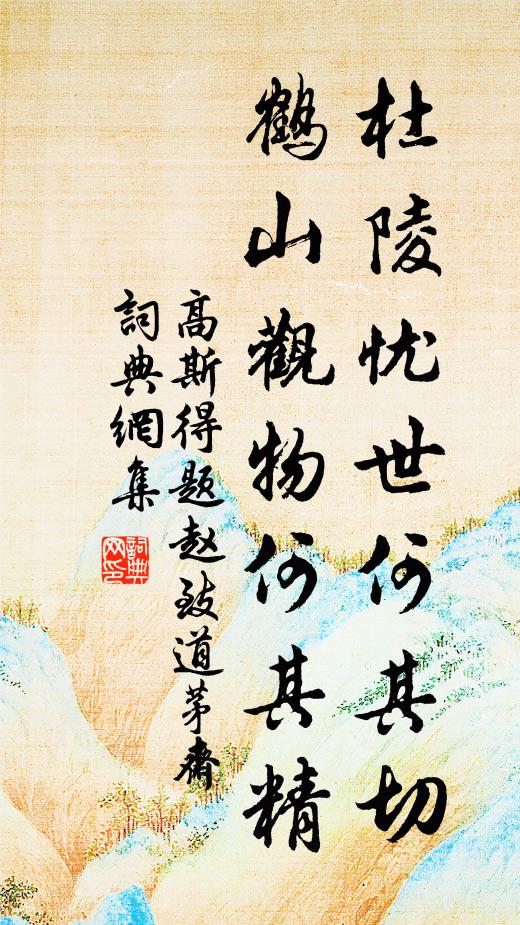 杜陵忧世何其切
鹤山觀物何其精
高斯得题赵致道茅斋
詞典網集
詞典网印